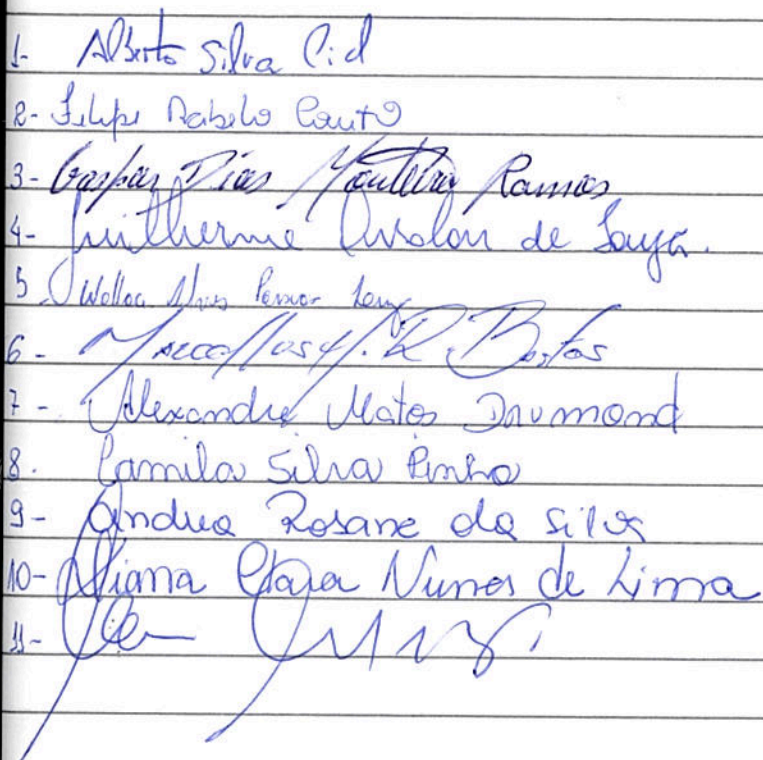 1- Alberto Silva Cid
2- Felipe Rabelo Couto
3- Gaspar Dias Monteiro Ramos
4- Guilherme de Souza.
5 Alves
6- R. Bastos
7- Alexandre Matos Drumond
8. Camila Silva Pinho
9- Andrea Rosane da Silva
10- Diana Clara Nunes de Lima
11-